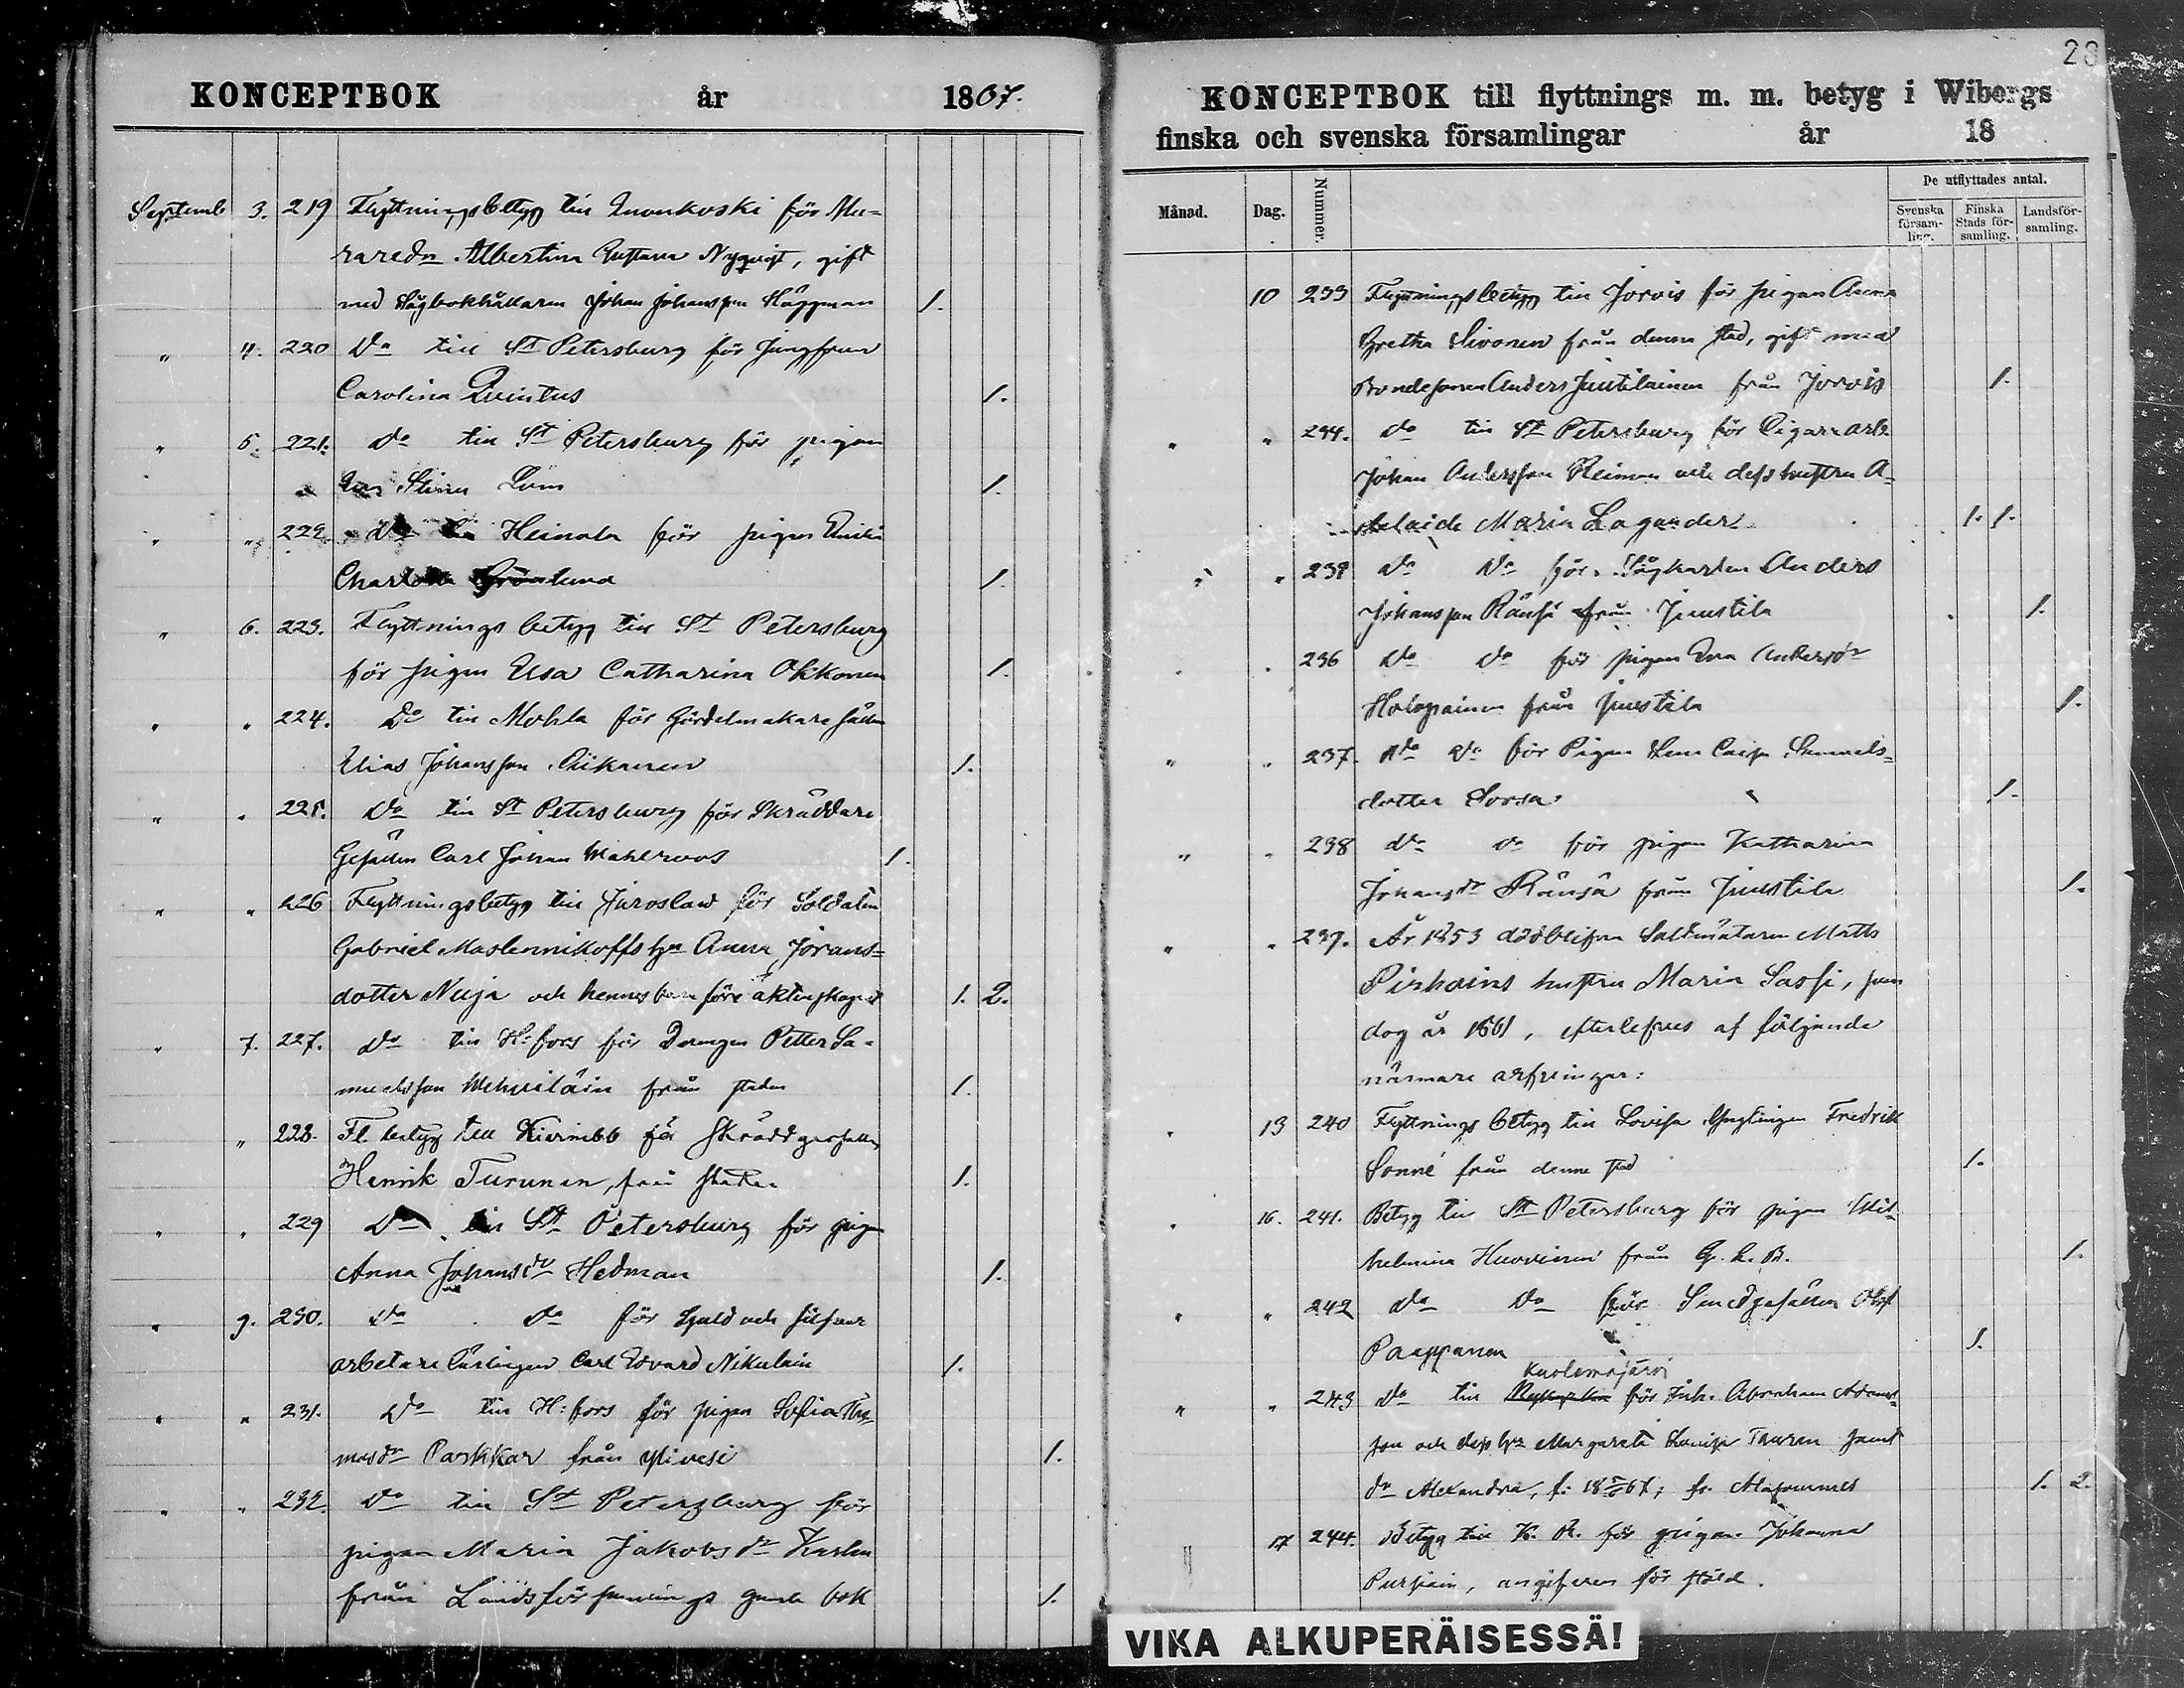 KONCEPTBOK år 1867.
Septemb 3. 219 Flyttningsbetyg till för Mu-
raredn Albertina Gustava Nyqvist, gift
med Johan Johansson Häggman 1.
" 4. 220 Do till St Petersburg för Jungfrun
Carolina Quintus 1.
" 5. 221. do till St Petersburg för pigan
Stina 1.
" " 222. Do Heinola för pigan
Charlotta Grönlund 1.
" 6. 223. Flyttnings betyg till St Petersburg
för pigan Elsa Catharina Okkonen 1.
" " 224. Do till Mohla för Gördelmakare
Elias Johansson 1.
" " 225. Do till St Petersburg för Skräddare
Gesällen Carl Johan Wahlroos 1.
" " 226 Flyttningsbetyg till Jaroslaw för Soldaten
Gabriel Maslennikoffs hu Anna Jörans-
dotter och hennes barn före äktenskapet 1. 2.
" 7. 227. do till H:fors för Drengen Petter Sa-
muelsson från staden 1.
" 228. Fl betyg till för Skräddgesällen
Henrik Turunen, från staden 1.
" " 229 Do till St Petersburg för pigan
Anna Johansdr Hedman 1.
" 9. 230. do do för Guld och silfver
arbetare lärlingen Carl Edvard Nikulain 1.
" " 231. Do till H:fors för pigan Sofia Tho-
masdr Parkkar från Ylivesi 1.
" " 232. Do till St Petersburg för
pigan Maria Jakobsdr
från Landsförsamlings gamla bok 1.
28
KONCEPTBOK till flyttnings m. m. betyg i Wiborgs
finska och svenska församlingar år 18
Månad. Dag. Nummer. De utflyttades antal.
Svenska församling. Finska Stads församling. Landsförsamling.
10 233 Flyttningsbetyg till Jorois för pigan Anna
Gretha Sivonen från denna stad, gift med
Bondesonen Anders Juutilainen från Jorois 1.
" " 234. do till St Petersburg för Cigarrarb.
Johan Andersson Reiman och dess hustru A-
delaide Maria Lagander 1. 1.
" " 235 do do för Anders
Johansson Ränsä från Juustila 1.
" " 236 do do för pigan Eva Andersdr
Holopainen från Juustila 1.
" " 237. do do för Pigan Lena Caisa Samuels-
dotter Sorsa 1.
" " 238 do do för pigan Katharina
Johansdr Ränsä från Juustila 1.
" " 239. År 1853 dödblifven Saltmätaren Matts
Pirhoins hustru Maria Sassi, som
dog år 1861, efterlefves af följande
närmare arfvingar:
" 13 240 Flyttnings betyg till Lovisa Ynglingen Fredrik
Sonné från denna stad 1.
" 16. 241. Betyg till St Petersburg för pigan Wil-
helmina Huovinen från G. L. B. 1.
" " 242 do do för Smedgesällen Olof
Paappanen 1.
Kuolemajärvi
" " 243 do till för Inh. Abraham Adams-
son och dess hu Margareta Lovisa Tauren samt
dr Alexandra, f: 18 67, fr. 1. 2.
" 17 244. Betyg till K. R. för pigan Johanna
Pursiain, angifven för stöld.
VIKA ALKUPERÄISESSÄ!